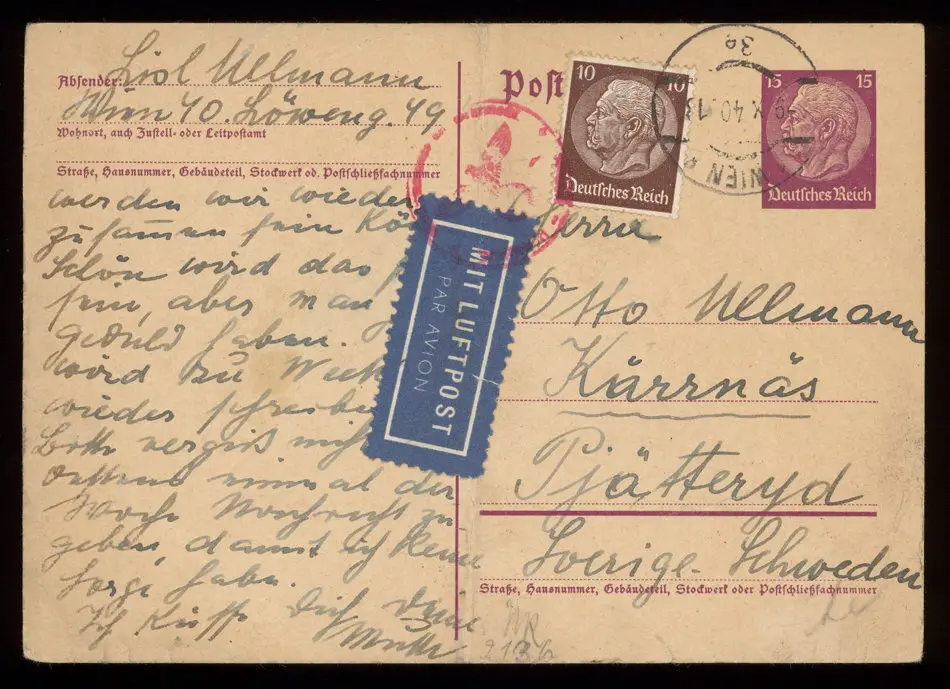 Absender: Lisl Ullmann
Wien 40. Löweng. 49
Wohnort, auch Zustell- oder Leitpostamt
Straße, Hausnummer, Gebäudeteil, Stockwerk od. Postschließfachnummer
werden wir wieder
zusammen sein
Schön wird das
sein, aber man
geduld haben.
wird zu
wieder schreiben
Bitte vergiß nicht
einmal der
Woche Nachricht zu
geben, damit ich keine
Sorge habe.
Ich Küsse Dich Deine
Mutti
MIT LUFTPOST
PAR AVION
Post
10 10
Deutsches Reich
15 15
Deutsches Reich
WIEN
X 40
Herrn
Otto Ullmann
Kärrnäs
Pjätteryd
Sverige-Schweden
Straße, Hausnummer, Gebäudeteil, Stockwerk oder Postschließfachnummer